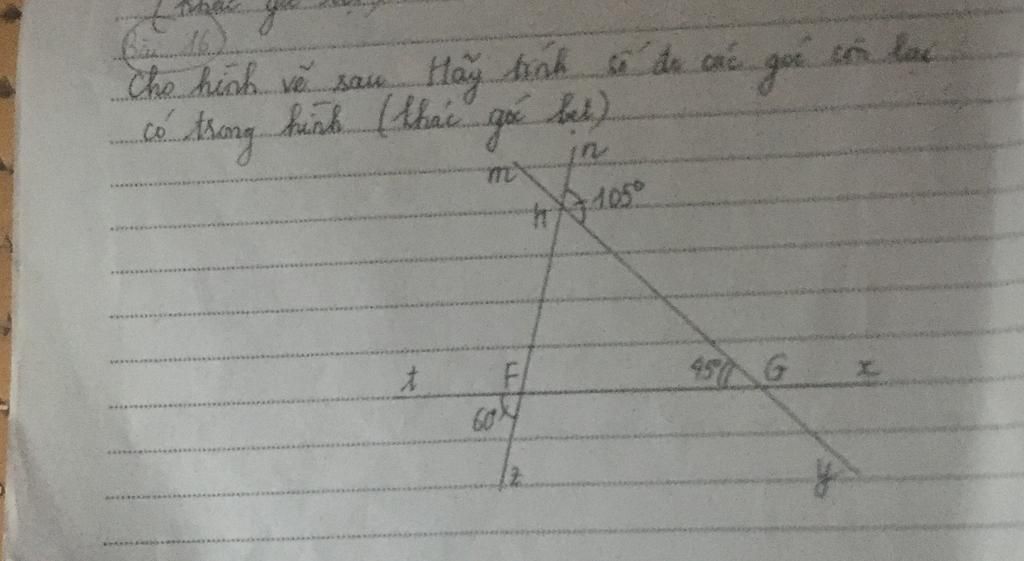 (khác góc
Bài 16
Cho hình vẽ sau Hãy tính số đo các góc còn lại
có trong hình (khác góc bẹt)
n
m
105°
H
t F 45° G x
60°
z y